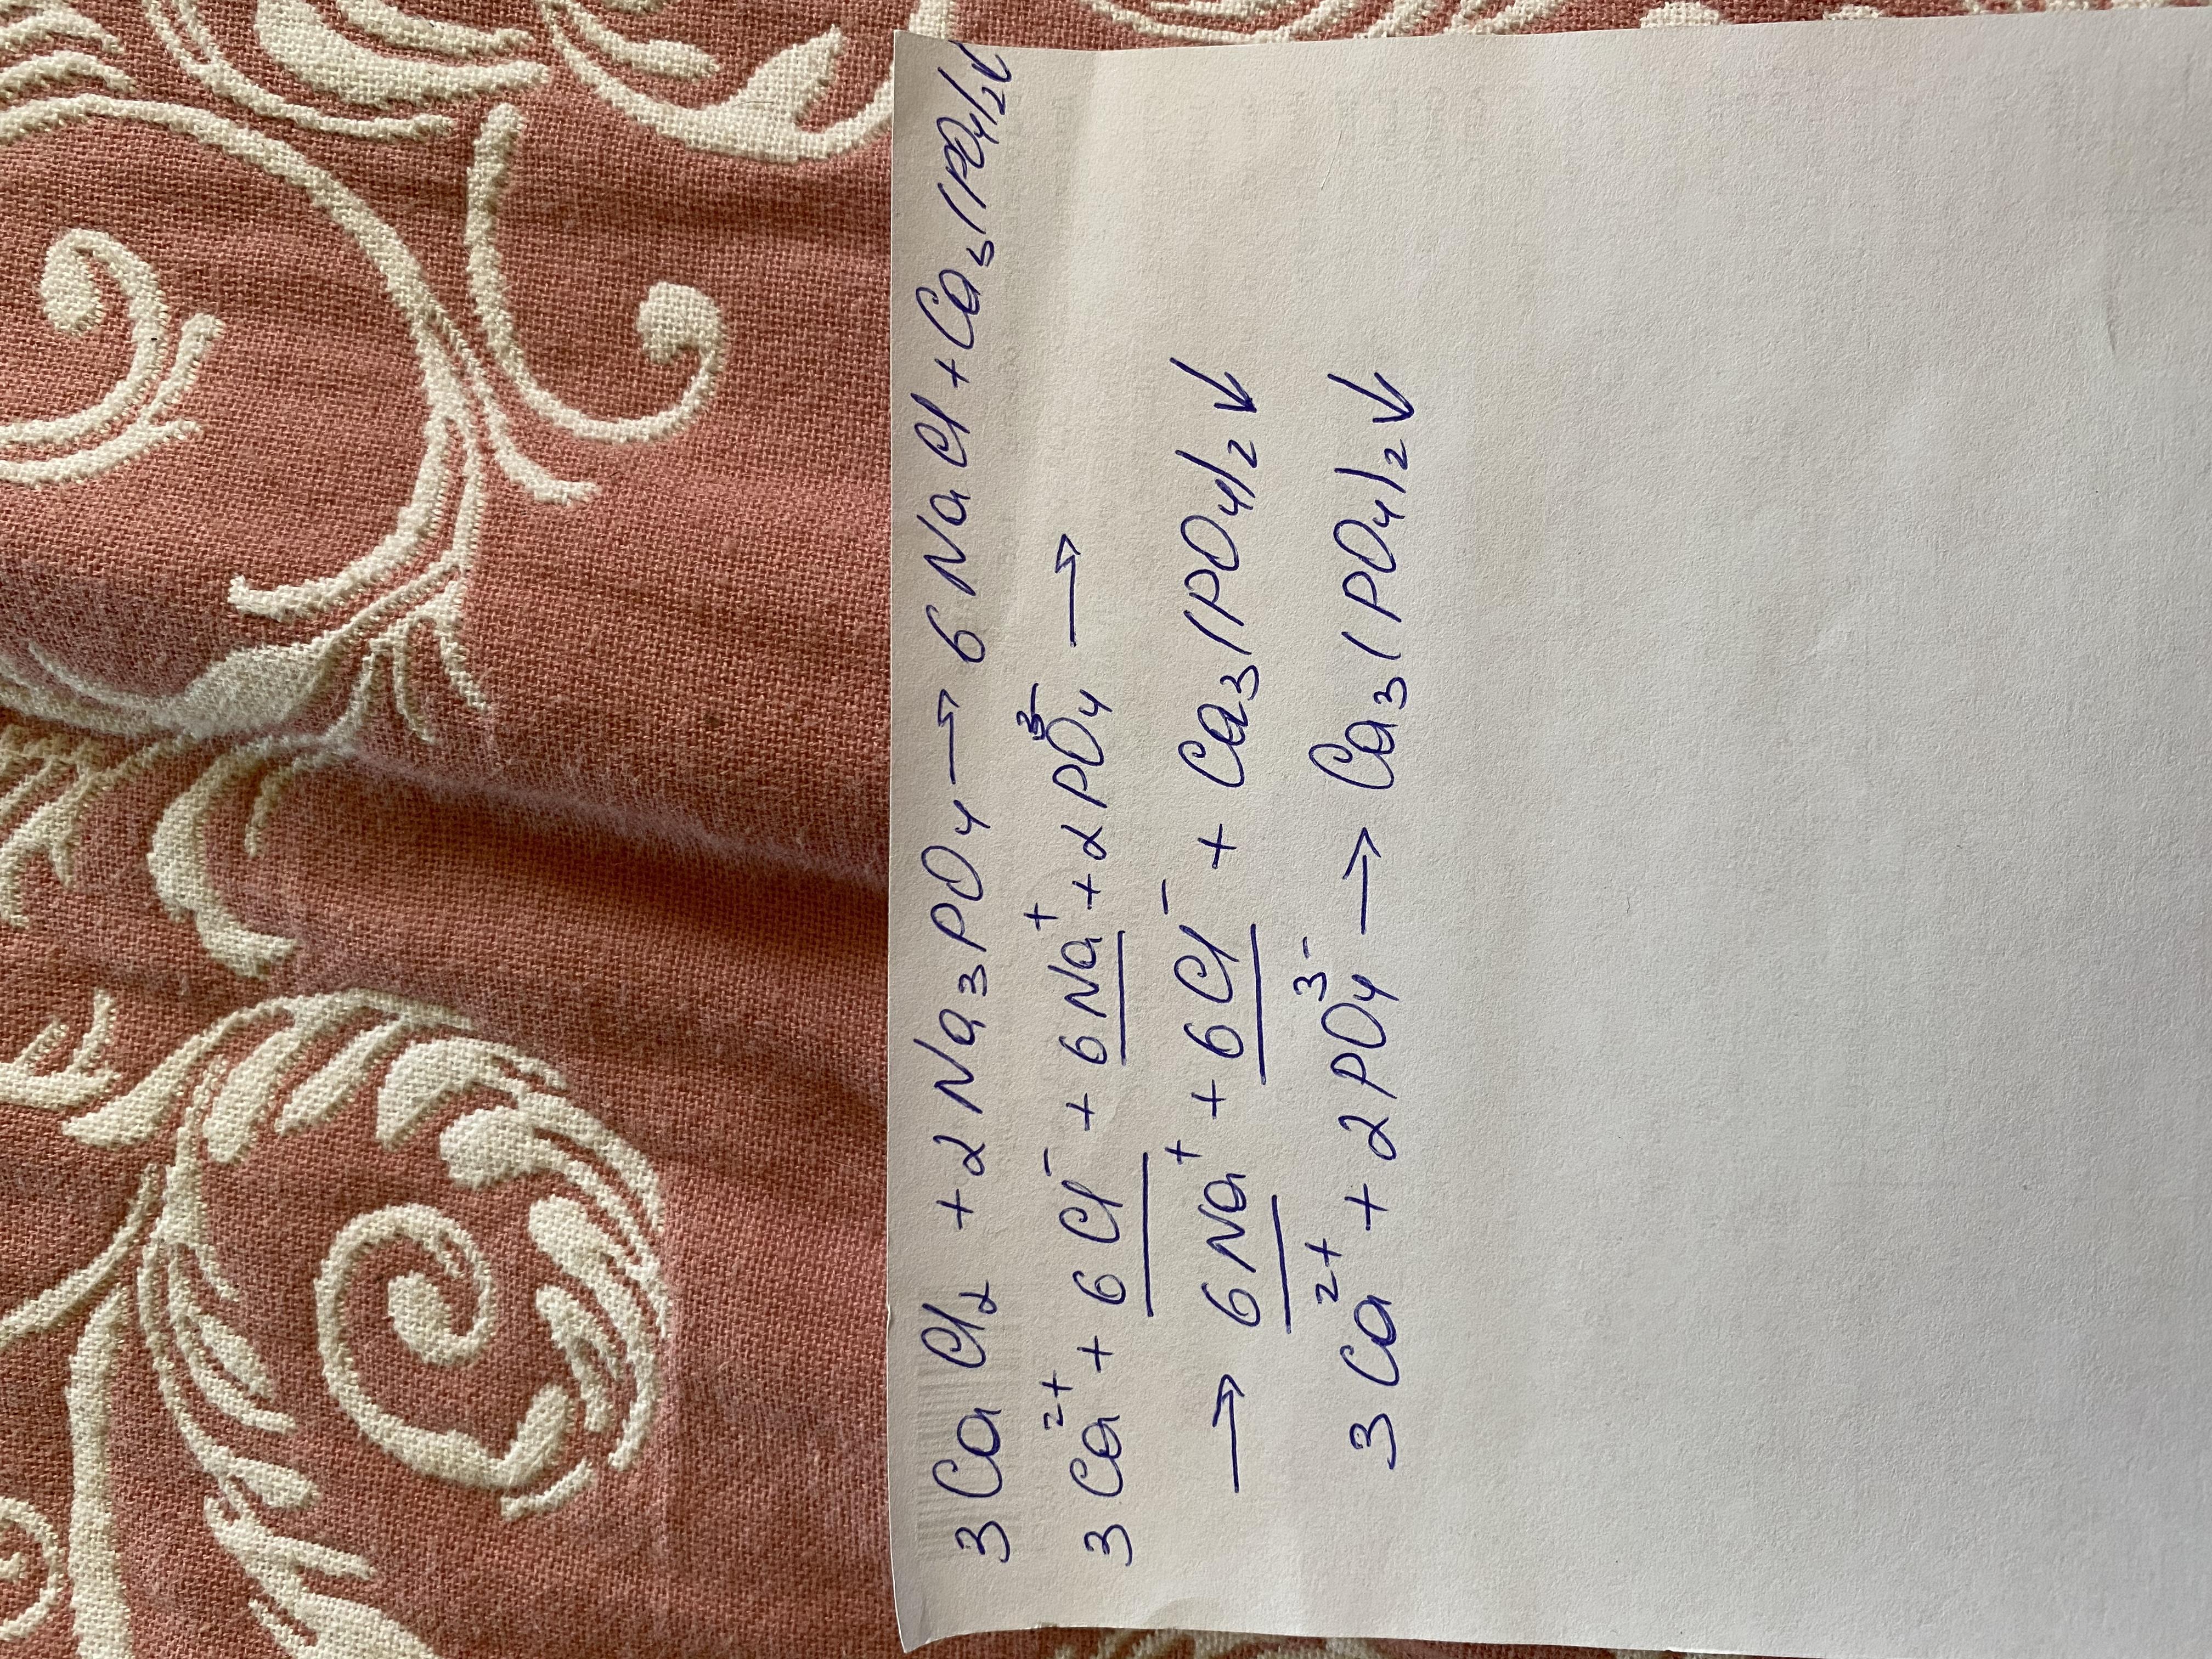 3CaCl₂ + 2Na₃PO₄ → 6NaCl + Ca₃(PO₄)₂↓
3Ca²⁺ + 6Cl⁻ + 6Na⁺ + 2PO₄³⁻ →
→ 6Na⁺ + 6Cl⁻ + Ca₃(PO₄)₂↓
3Ca²⁺ + 2PO₄³⁻ → Ca₃(PO₄)₂↓